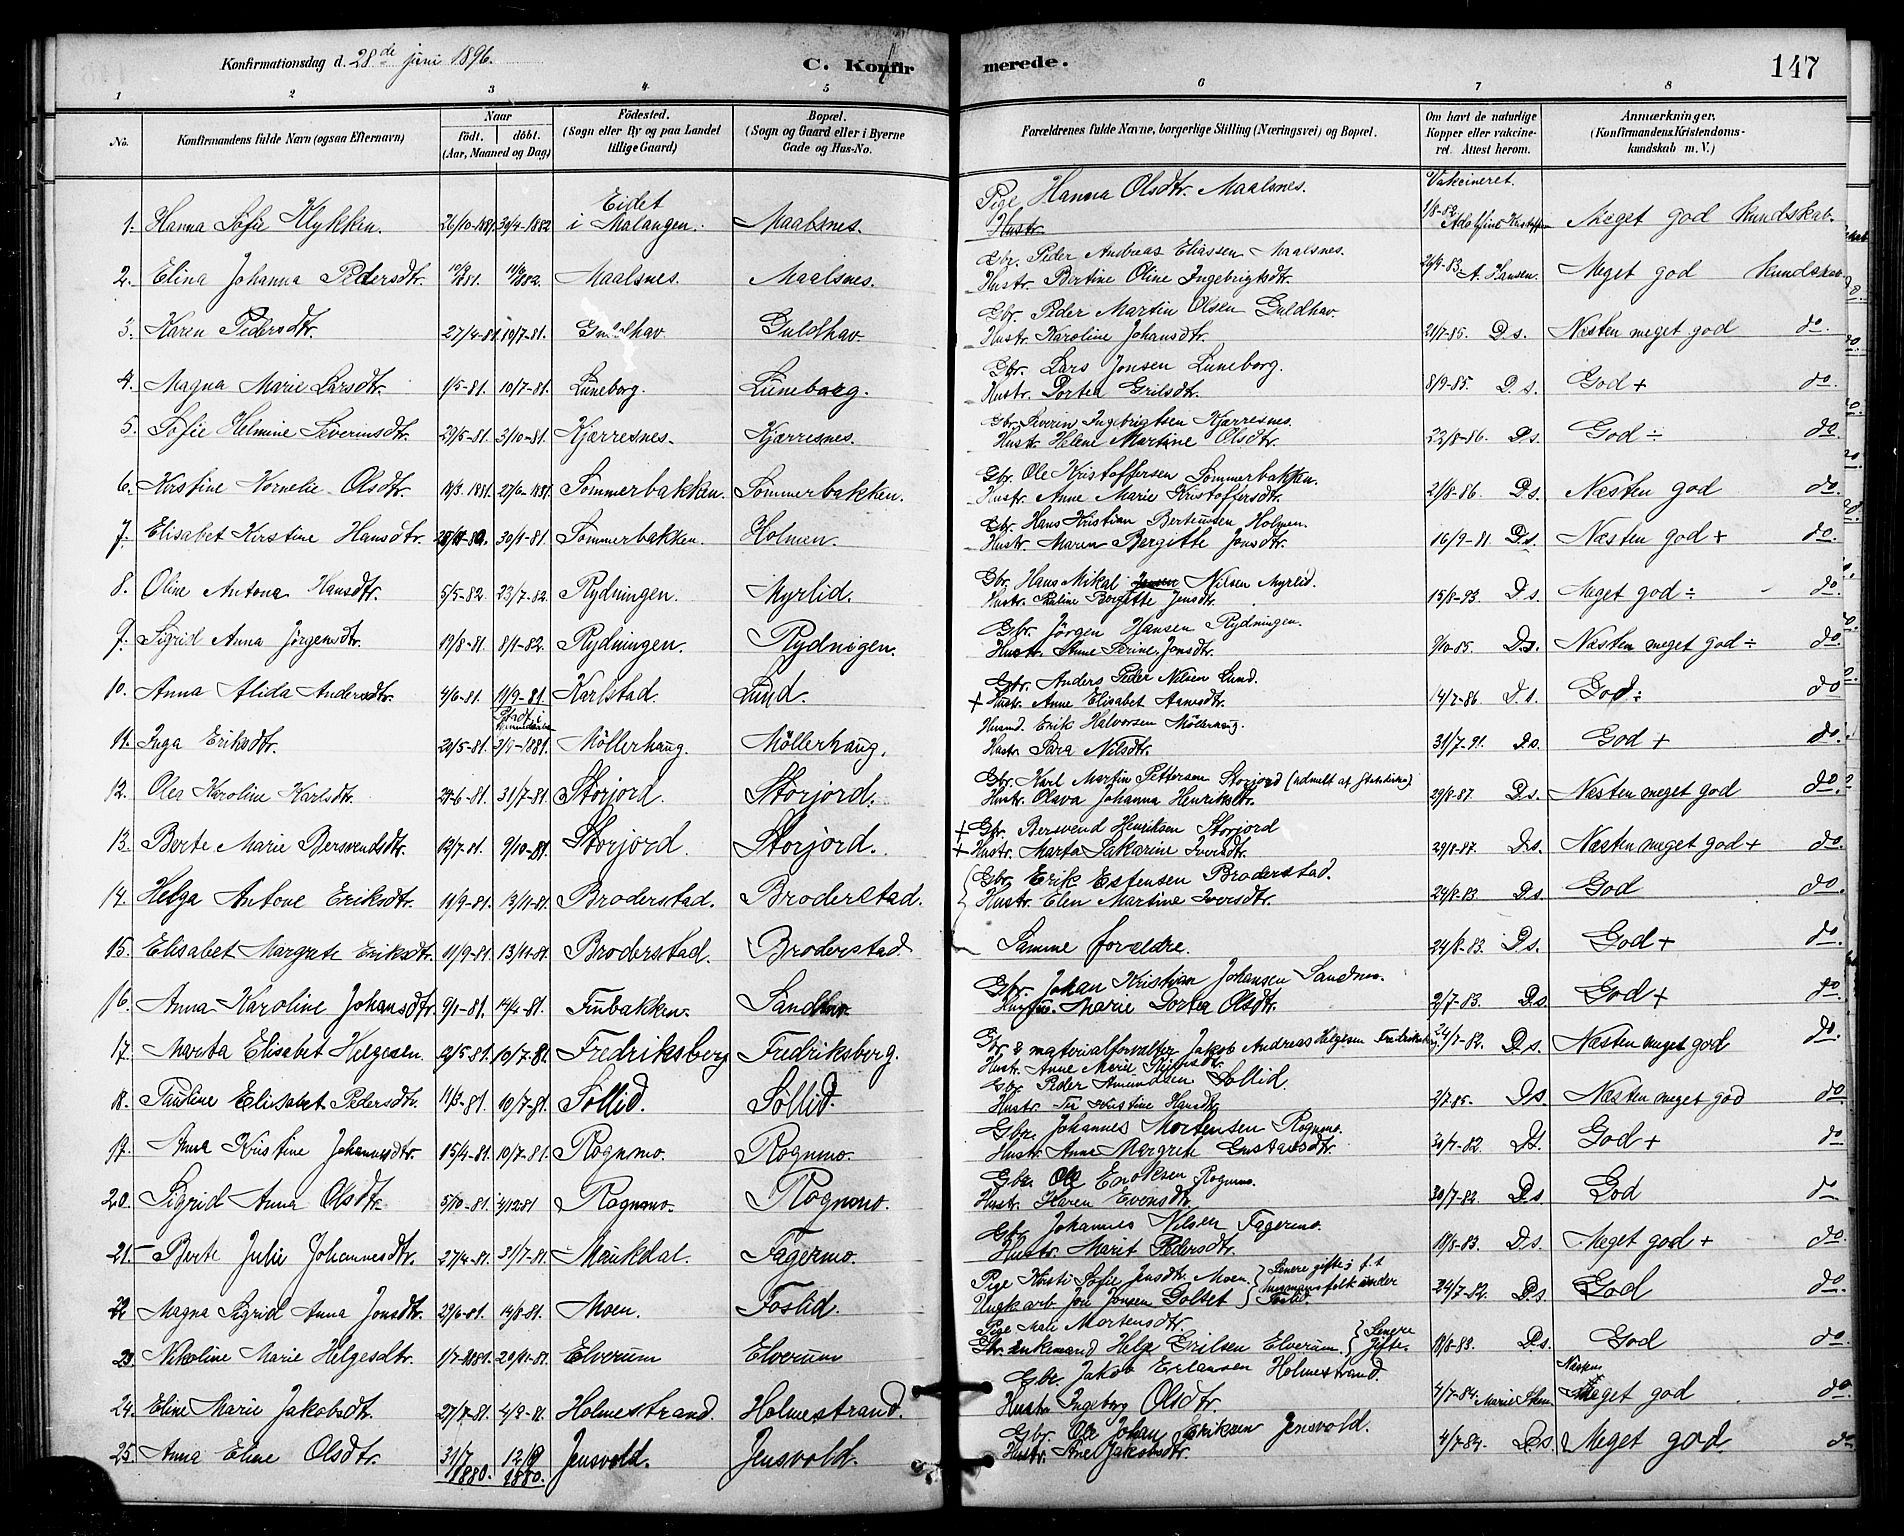 Konfirmationsdag d. 28de juni 1896.
C. Konfirmerede.
147
1 2 3 4 5 6 7 8
No.
Konfirmandens fulde Navn (ogsaa Efternavn)
Naar
födt. döbt.
(Aar, Maaned og Dag)
Födested.
(Sogn eller By og paa Landet tillige Gaard)
Bopæl.
(Sogn og Gaard eller i Byerne Gade og Hus-No.
Forældrenes fulde Navne, borgerlige Stilling (Næringsvei) og Bopæl.
Om havt de naturlige Kopper eller vakcineret. Attest herom.
Anmærkninger.
(Konfirmandens Kristendomskundskab m. V.)
1. Hanna Sofie Klykken. 26/10-1881. 30/4-1882 Eidet i Malangen. Maalsnes. Pige Hanna Olsdtr. Maalsnes. Vakcineret. 1/8-82 Meget god Kundskab.
Hustr.
2. Elina Johanna Pedersdtr. Maalsnes. Maalsnes. Gbr. Peder Andreas Eliassen Maalsnes. A. Hansen. Meget god Kundskab
Hustr. Bertine Oline Ingebrigtsdtr.
3. Karen Pedersdtr. 27/4-81 10/7-81. Guldhav Guldhav Gbr. Peder Martin Olsen Guldhav
Hustr. Karoline Johansdtr. 21/7-85. D.s. Næsten meget god do.
4. Magna Marie Larsdtr. 1/5-81. 10/7-81. Luneborg. Luneborg. Gbr. Lars Jonsen Luneborg.
Hustr. Dortea Grilsdtr. 8/9-85. D.s. God + do
5. Sofie Helmine Severinsdtr. 29/5-81. 3/10-81. Kjærresnes. Kjærresnes. Gbr. Severin Ingebrigtsen Kjærresnes.
Hustr. Helene Martine Olsdtr. 22/8-86. D.s. God ÷ do
6. Kristine Kornelie Olsdtr. Sommerbakken. Sommerbakken. Gbr. Ole Kristoffersen Sommerbakken.
Hustr. Anne Marie Kristoffersdtr. 21/8-86. D.s. Næsten god do
7. Elisabet Kirstine Hansdtr. 30/1-81. Sommerbakken. Holmen. Gbr. Hans Kristian Berteussen Holmen.
Hustr. Maren Bergitte Jonsdtr. 16/9-81. D.s. Næsten god + do.
8. Oline Antona Hansdtr. 5/5-82. 23/7-82. Rydningen. Myrlid. Gbr. Hans Mikal Jensen Nilsen Myrlid.
Hustr. Bergitte Jensdtr. 15/8-93. D.s. Meget god ÷ do
9. Sigrid Anna Jörgensdtr. 19/8-81. 8/1-82. Rydningen. Rydnigen. Gbr. Jörgen Hansen Rydningen.
Hustr. Anne Jonsdtr. D.s. Næsten meget god ÷ do
10. Anna Alida Andersdtr. 4/6-81. 11/9-81. Karlstad. Lund. Gbr. Anders Peder Nilsen Lund.
+ Hustr. Anne Elisabet Hansdtr. 14/7-86. D.s. God ÷ do
11. Inga Eriksdtr. Möllerhaug. Möllerhaug. Husmd. Erik Halvorsen Möllerhaug.
Hustr. Sara Nilsdtr. 31/7-91. D.s. God + do
12. Olea Karoline Karlsdtr. 31/7-81. Storjord. Storjord. Gbr. Karl Martin Pettersen Storjord (udmeldt af Statskirken)
Hustr. Olava Johanna Henriksdtr. 29/8-87. D.s. Næsten meget god do.
13. Berte Marie Bersvendsdtr. 12/7-81. 2/10-81. Storjord. Storjord. + Gbr. Bersvend Henriksen Storjord
+ Hustr. Marta Sakarine Iversdtr. 29/8-87. D.s. Næsten meget god + do.
14. Helga Antone Eriksdtr. 11/9-81. 13/11-81. Broderstad. Broderstad. Gbr. Erik Estensen Broderstad.
Hustr. Elen Martine Iversdtr. 24/8-83. D.s. God do.
15. Elisabet Margrete Eriksdtr. 11/9-81. 13/11-81. Broderstad. Broderstad Samme forældre. 24/8-83. D.s. God + do
16. Anna Karoline Johansdtr. 9/1-81. Finbakken. Sandmo. Gbr. Johan Kristian Johansen Sandmo.
Hustr. Marie Dortea Olsdtr. 2/7-83. D.s. God + do
17. Marta Elisabet Helgesen. 2/5-81. 10/7-81. Fredriksberg Fredriksberg. Gbr. & materialforvalter Jakob Andreas Helgesen Fredriksberg. 24/7-82. D.s. Næsten meget god do
Hustr. Anne Marie
18. Pauline Elisabet Pedersdtr. 11/3-81. 10/7-81. Sollid. Sollid. Gbr. Peder Amundsen Sollid.
Hustr. Kristine Hansdtr. 2/7-85. D.s. Næsten meget god do
19. Anna Kristine Johannesdtr. 15/4-81. 10/7-81. Rognmo. Rognmo. Gbr. Johannes Mortensen Rognmo.
Hustr. Anna Margrete Gustavsdtr. D.s. God + do
20. Sigrid Anna Olsdtr. 5/10-81. Rognmo. Rognmo. Gbr. Ole Enoksen Rognmo.
Hustr. Karen Evensdtr. 30/7-82. D.s God do
21. Berte Julie Johannesdtr. 27/4-81. 31/7-81. Maukdal. Fagermo. Gbr. Johannes Nilsen Fagermo.
Hustr. Marit Pedersdtr. 18/8-83. D.s. Meget god + do.
22 Magna Sigrid Anna Jonsdtr. 29/6-81. 14/8-81. Moen. Foslid. Pige Kirsti Sofie Jensdtr. Moen. Senere gifte;
Ungk. arb. Jon Jonsen Golset 24/7-82. D.s. God do.
23 Nikoline Marie Helgesdtr. 1/7-1881. 20/11-81. Elverum Elverum Pige Mali Mortensdtr.
Gbr. Enkemand Helge Grilsen Elverum. Senere gifte. 18/8-83. D.s. God do.
24. Eline Marie Jakobsdtr. 27/7-81. 4/9-81. Holmestrand. Holmestrand. Gbr. Jakob Erlansen Holmestrand.
Hustr. Ingeborg Olsdtr. 4/7-84. Næsten Meget god do
25. Anna Eline Olsdtr. 31/7 1880. 12/9 1880. Jensvold. Jensvold. Gbr. Ole Johan Eriksen Jensvold.
Hustr. Ane Jakobsdtr. 4/7-84. D.s. Meget god do